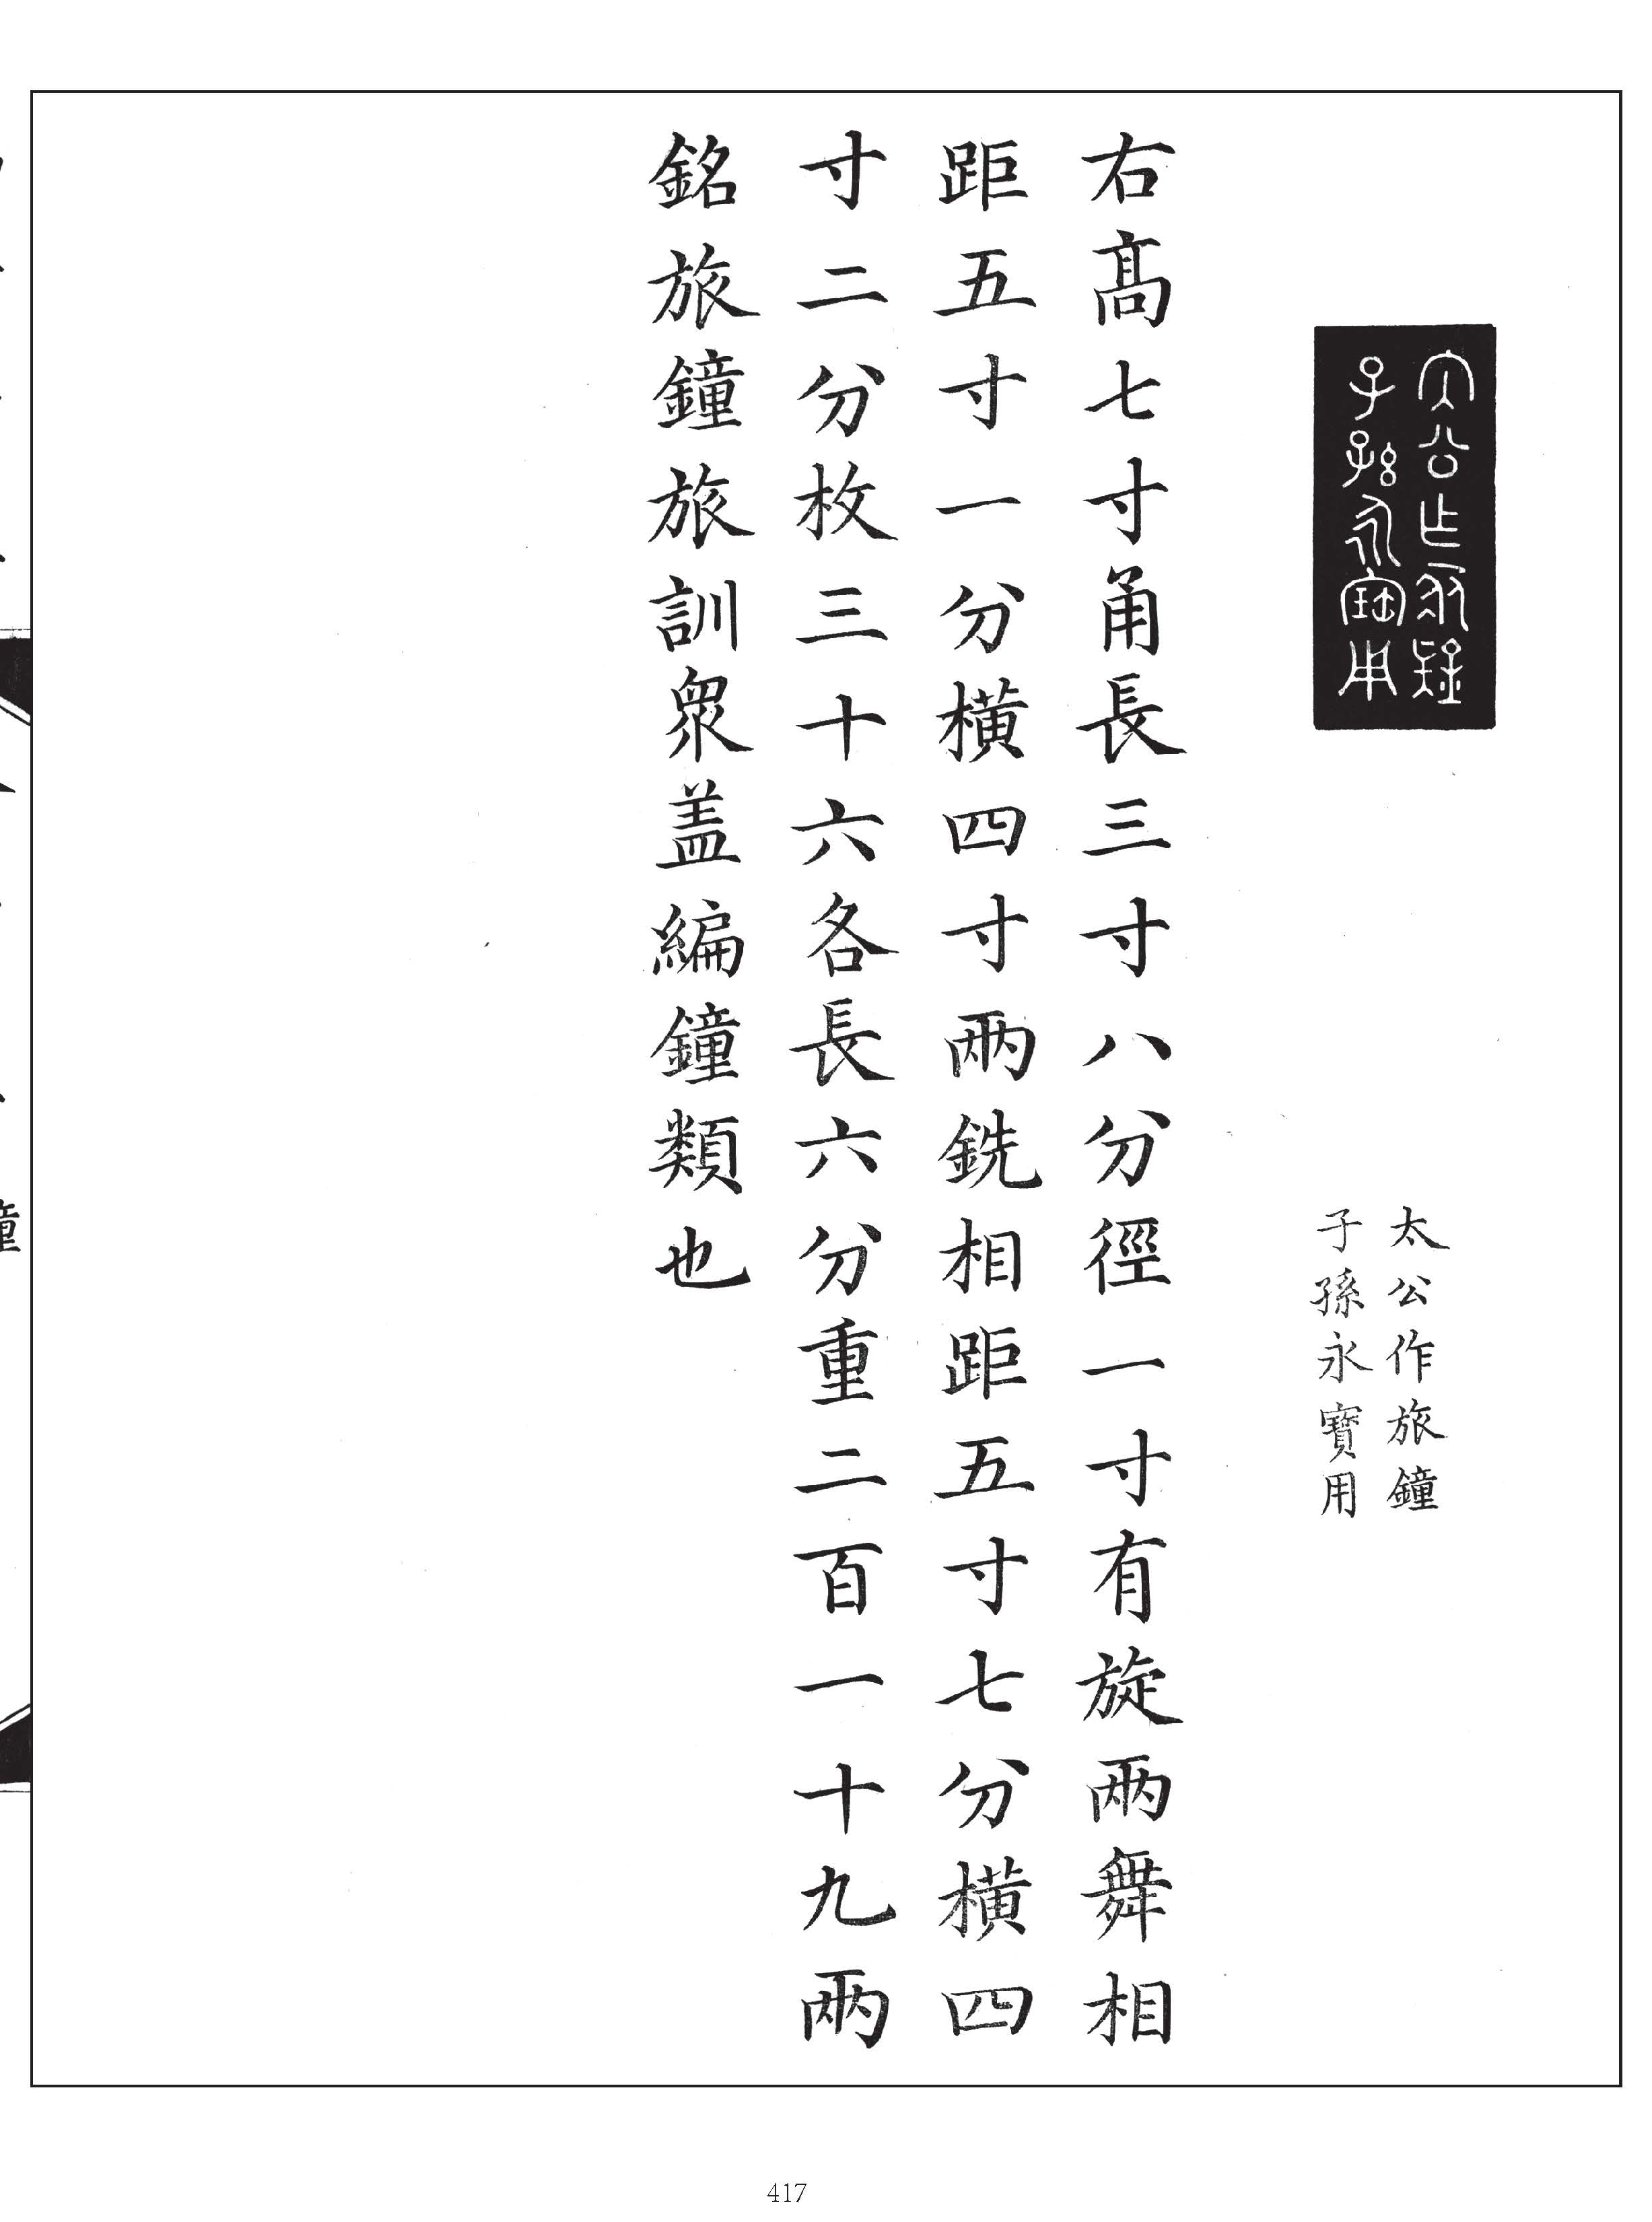 太公作旅鐘
子孫永寶用
太公作旅鐘
子孫永寶用
右高七寸甬長三寸八分徑一寸有旋兩舞相
距五寸一分橫四寸兩銑相距五寸七分橫四
寸二分枚三十六各長六分重二百一十九兩
銘旅鐘旅訓衆蓋編鐘類也
鐘
417